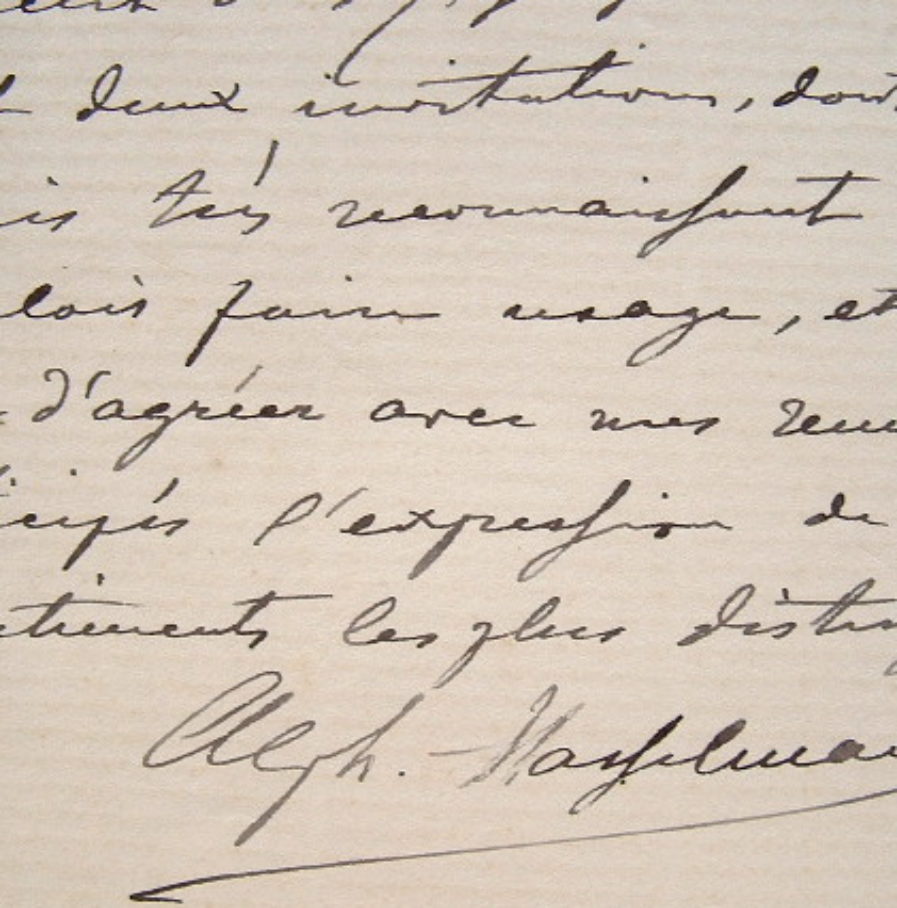 deux invitations, dont
is très reconnaissant
lois faire usage, et
d'agréer avec mes rem
cipés l'expression de
timents les plus disting
Alph. Hasselman